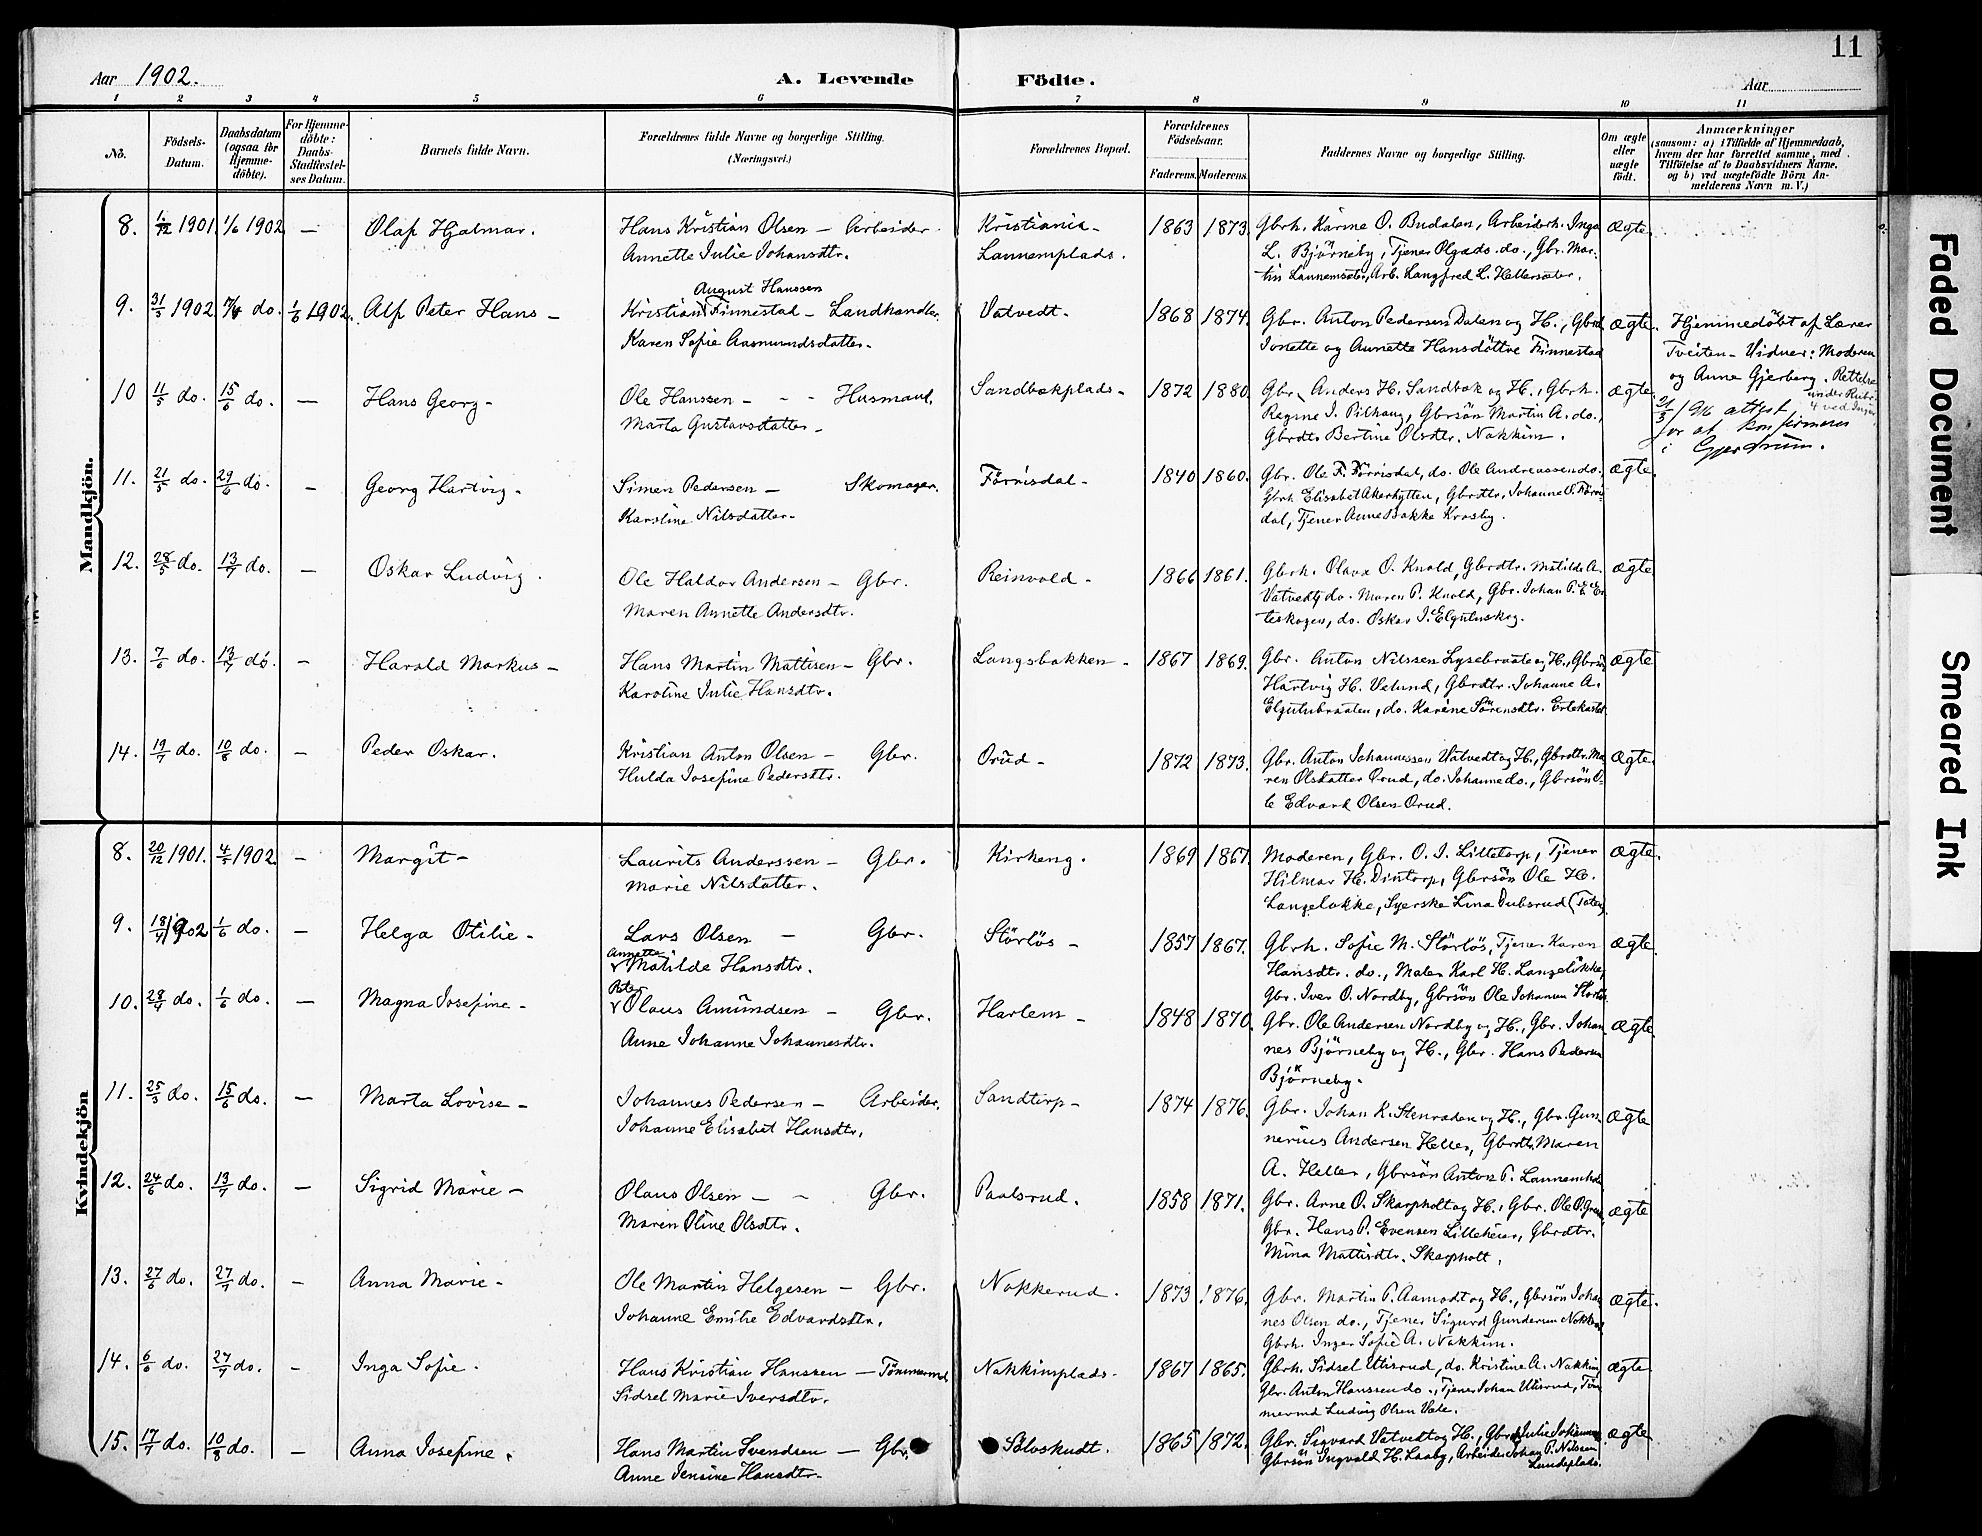 11
Aar 1902.
A. Levende Födte.
Aar
1 2 3 4 5 6 7 8 9 10 11
No.
Födsels-Datum.
Daabsdatum (ogsaa for Hjemme-döbte).
For Hjemme-döbte: Daabs-Stadfæstel-ses Datum.
Barnets fulde Navn.
Forældrenes fulde Navne og borgerlige Stilling. (Næringsvei.)
Forældrenes Bopæl.
Forældrenes Födselsaar.
Faderens. Moderens.
Faddernes Navne og borgerlige Stilling.
Om ægte eller uægte födt.
Anmærkninger
(saasom: a) i Tilfælde af Hjemmedaab,
hvem der har forrettet samme, med
Tilföielse af to Daabsvidners Navne,
og b) ved uægtefödte Börn An-
melderens Navn m. V.)
Mandkjön.
8. 1/12 1901. 1/6 1902 — Olaf Hjalmar. Hans Kristian Olsen — Arbeider. Kristiania- 1863 1873. Gbrh. Karine O. Budalen, Arbeiderh. Inga ægte.
Annette Julie Johansdtr. Lannemplads. L. Björneby, Tjener Olga do. do., Gbr. Mar-
tin Lannemsæter, Arb. Langfred L. Hellersæter.
August Hanssen
9. 31/3 1902 do. 1/6 1902. Alf Peter Hans — Kristian Finnestad — Landhandler. Vatvedt- 1868 1874. Gbr. Anton Pedersen Dalen og H., Gbrd. ægte. Hjemmedöbt af Lærer
Karen Sofie Aasmundsdatter- Jonette og Annette Hansdöttre Finnestad Tveiten - Vidner: Moderen
og Anne Gjerberg. Rettelse
under Rubr.
4 ved
10 11/5 do. 15/6 do. — Hans Georg- Ole Hanssen — Husmand. Sandbækplads- 1872 1880. Gbr. Anders H. Sandbæk og H., Gbrh. ægte. 21/3 1916 attest
Marta Gustavsdatter- Regine J. Pilhaug, Gbrsön Martin A. do., for at konfirmeres
Gbrdtr. Bertine Olsdtr. Nakkim. i Gjerdrum.
11. 21/5 do. 29/6 do. — Georg Hartvig- Simen Pedersen — Skomager. Förrisdal- 1840 1860. Gbr. Ole F. Förrisdal, do. Ole Andreassen do., ægte.
Karoline Nilsdatter- Gbrh. Elisabet Akerhytten, Gbrdtr. Johanne O. Förris-
dal, Tjener Anne Bakke Krosby.
12. 28/5 do. 13/7 do. — Oskar Ludvig. Ole Haldor Andersen — Gbr. Reinvold- 1866 1861. Gbrh. Olava O. Knold, Gbrdtr. Matilde A. ægte.
Maren Annette Andersdtr. Vatvedt, do. Maren P. Knold, Gbr. Johan P. E. Er-
teskogen, do. Oskar J. Elgutuskog.
13. 7/6 do. 13/7 do. — Harald Markus- Hans Martin Mattisen — Gbr. Langsbakken- 1867 1869. Gbr. Anton Nilssen Lysebraate og H., Gbrsön ægte
Karoline Julie Hansdtr. Hartvig H. Velund, Gbrdtr. Johanne A.
Elgutubraaten, do. Karene Sörensdtr. Ertekastet.
14. 19/7 do. 10/8 do. — Peder Oskar. Kristian Anton Olsen — Gbr. Orud- 1872 1873. Gbr. Anton Johannessen Vatvedt og H., Gbrdtr. Ma- ægte.
Hulda Josefine Pedersdtr. ren Olsdatter Orud, do. Johanne do., Gbrsön O-
le Edvard Olsen Orud.
Kvindekjön
8. 20/12 1901. 4/5 1902. — Margit- Laurits Anderssen — Gbr. Kirkeng. 1869 1867. Moderen, Gbr. O. J. Lilletorp, Tjener ægte.
Marie Nilsdatter. Hilmar H. Dintorp, Gbrsön Ole H.
Langeløkke, Syerske Lina Dubsrud (Toten).
9. 18/4 1902 1/6 do. — Helga Otilie- Lars Olsen — Gbr. Störlös- 1857 1867. Gbrh. Sofie M. Störlös, Tjener Karen ægte.
Annette
Matilde Hansdtr. Hansdtr. do., Maler Karl H. Langelökke,
Gbr. Iver O. Nordby, Gbrsön Ole Johansen Störlös
Peter
10. 28/4 do. 1/6 do. — Magna Josefine- Olaus Amundsen — Gbr. Harlem- 1848 1870. Gbr. Ole Andersen Nordby og H., Gbr. Johan- ægte.
Anne Johanne Johannesdtr. nes Björneby og H., Gbr. Hans Pedersen
Björneby.
11. 25/5 do. 15/6 do. — Marta Lovise- Johannes Pedersen — Arbeider. Sandtorp- 1874 1876. Gbr. Johan K. Stenraden og H., Gbr. Gun- ægte
Johanne Elisabet Hansdtr. nerius Andersen Heller, Gbrdtr. Maren
A. Heller, Gbrsön Anton P. Lannemhol
12. 24/6 do. 13/7 do. — Sigrid Marie- Olaus Olsen — Gbr. Paalsrud. 1858 1871. Gbr. Arne O. Skarpholt og H., Gbr. Ole P. ægte
Maren Oline Olsdtr. Gbr. Hans P. Evensen Lilleheier, Gbrdtr.
Mina Mattisdtr. Skarpholt.
13. 27/6 do. 27/7 do. — Anna Marie- Ole Martin Helgesen — Gbr. Nakkerud. 1873 1876. Gbr. Martin P. Aamodt og H., Gbrsön Johan- ægte.
Johanne Emilie Edvardsdtr. nes Olsen do., Tjener Sigurd Gundersen Nakkim
Gbrh. Inger Sofie A. Nakkim.
14. 6/6 do. 27/7 do. — Inga Sofie. Hans Kristian Hanssen — Tömmermd. Nakkimplads. 1867 1865. Gbrh. Sidsel Utisrud, do. Kristine A. Nakkim, ægte
Sidsel Marie Iversdtr. Gbr. Anton Hanssen do., Tjener Johan Utisrud, Töm-
mermd Ludvig Olsen Vale.
15. 17/7 do. 10/8 do. — Anna Josefine. Hans Martin Svendsen — Gbr. Sölvskudt. 1865 1872. Gbr. Sigvard Vatvedt og H., Gbrd. Julie Johannes. ægte.
Anne Jensine Hansdtr- Gbrsön Ingvald H. Laaby, Arbeider Johan P. Nilssen
Lundeplads.
Faded Document
Smeared Ink